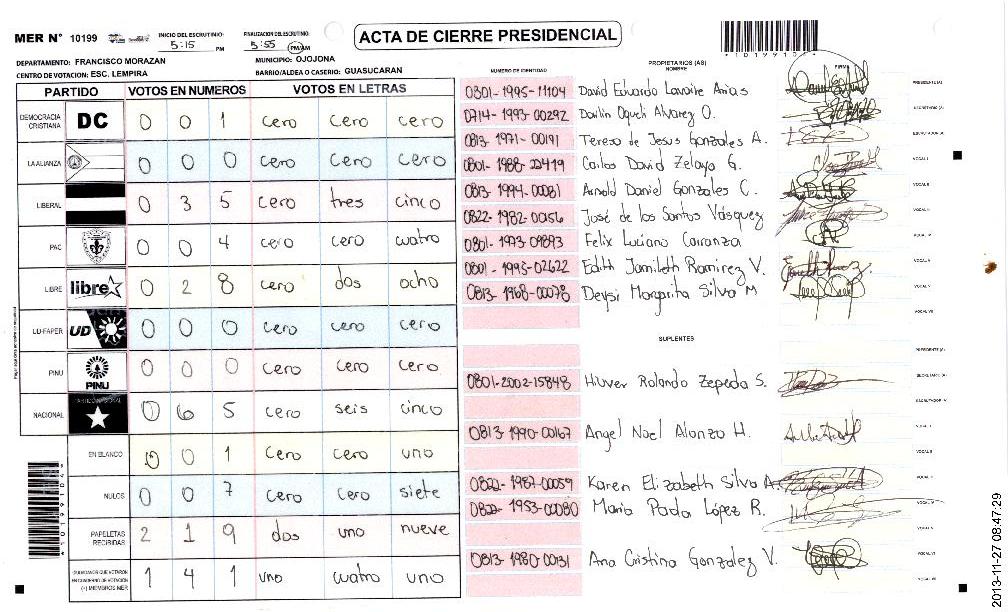 MER N° 10199
INICIO DEL ESCRUTINIO: 5:15 PM
FINALIZACION DEL ESCRUTINIO: 5:55 PM/AM
ACTA DE CIERRE PRESIDENCIAL
*1019910*
DEPARTAMENTO: FRANCISCO MORAZAN
MUNICIPIO: OJOJONA
CENTRO DE VOTACION: ESC. LEMPIRA
BARRIO/ALDEA O CASERIO: GUASUCARAN
PARTIDO VOTOS EN NUMEROS VOTOS EN LETRAS
DEMOCRACIA CRISTIANA DC 0 0 1 cero cero cero
LA ALIANZA 0 0 0 cero cero cero
LIBERAL 0 3 5 cero tres cinco
PAC 0 0 4 cero cero cuatro
LIBRE libre 0 2 8 cero dos ocho
UD-FAPER UD 0 0 0 cero cero cero
PINU PINU 0 0 0 cero cero cero
NACIONAL 0 6 5 cero seis cinco
EN BLANCO 0 0 1 cero cero uno
NULOS 0 0 7 cero cero siete
PAPELETAS RECIBIDAS 2 1 9 dos uno nueve
CIUDADANOS QUE VOTARON EN CUADERNO DE VOTACION (+) MIEMBROS MER 1 4 1 uno cuatro uno
NUMERO DE IDENTIDAD
PROPIETARIOS (AS)
NOMBRE
FIRMA
0301-1995-11104 David Eduardo Lavaire Arias PRESIDENTE (A)
0714-1993-00292 Darlin Oqueli Alvarez O. SECRETARIO (A)
0813-1971-00191 Teresa de Jesus Gonzales A. ESCRUTADOR (A)
0801-1988-22419 Carlos David Zelaya G. VOCAL I
0813-1994-00081 Arnold Daniel Gonzales C. VOCAL II
0822-1982-00156 José de los Santos Vásquez VOCAL III
0801-1973-09893 Felix Luciano Carranza VOCAL IV
0801-1995-02622 Edith Jamileth Ramirez V. VOCAL V
0813-1968-00078 Deysi Margarita Silva M VOCAL VI
VOCAL VII
SUPLENTES
PRESIDENTE (A)
0801-2002-15848 Hilver Rolando Zepeda S. SECRETARIO (A)
ESCRUTADOR (A)
0813-1990-00167 Angel Noel Alonzo H. VOCAL I
VOCAL II
0822-1987-00059 Karen Elizabeth Silva A. VOCAL III
1953-00080 Maria Paola López R. VOCAL IV
VOCAL V
0813-1980-00131 Ana Cristina Gonzalez V. VOCAL VI
VOCAL VII
2013-11-27 08:47:29